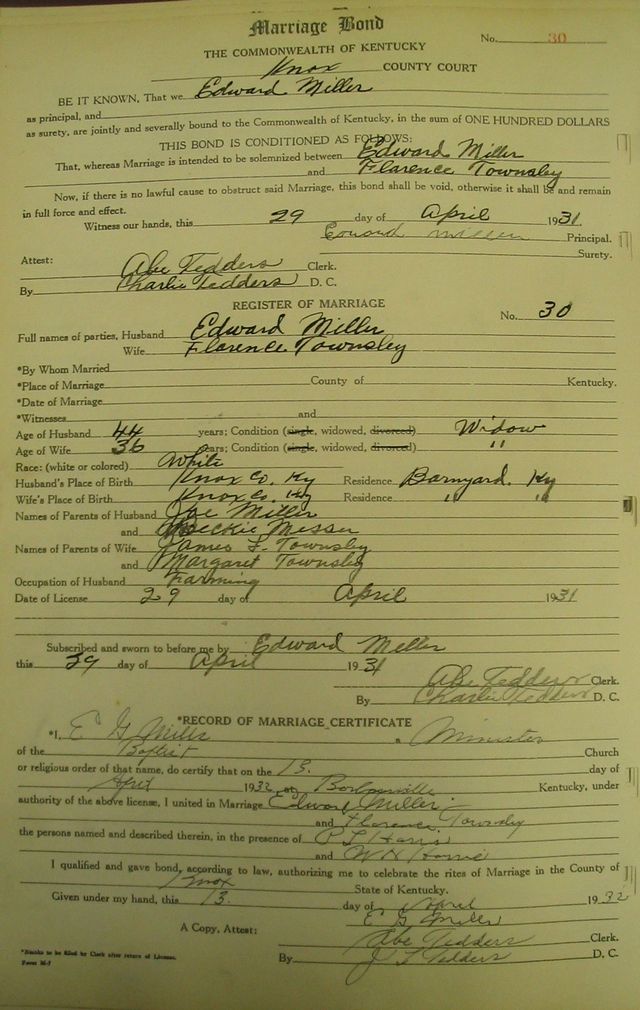 Marriage Bond
No. 30
THE COMMONWEALTH OF KENTUCKY
Knox COUNTY COURT
BE IT KNOWN, That we Edward Miller
as principal, and
as surety, are jointly and severally bound to the Commonwealth of Kentucky, in the sum of ONE HUNDRED DOLLARS
THIS BOND IS CONDITIONED AS FOLLOWS:
That, whereas Marriage is intended to be solemnized between Edward Miller
and Florence Townsley
Now, if there is no lawful cause to obstruct said Marriage, this bond shall be void, otherwise it shall be and remain
in full force and effect.
Witness our hands, this 29 day of April 1931
Edward Miller Principal.
Surety.
Attest: Abe Tedders Clerk.
By Charlie Tedders D. C.
REGISTER OF MARRIAGE
No. 30
Full names of parties, Husband Edward Miller
Wife Florence Townsley
*By Whom Married
*Place of Marriage County of Kentucky.
*Date of Marriage
*Witnesses and
Age of Husband 44 years; Condition (single, widowed, divorced) Widow
Age of Wife 36 years; Condition (single, widowed, divorced) "
Race: (white or colored) White
Husband's Place of Birth Knox Co. Ky Residence Barnyard. Ky
Wife's Place of Birth Knox Co. Ky Residence " "
Names of Parents of Husband Joe Miller
and Messer
Names of Parents of Wife James F. Townsley
and Margaret Townsley
Occupation of Husband Farming
Date of License 29 day of April 1931
Subscribed and sworn to before me by Edward Miller
this 39 day of April 1931
Abe Tedders Clerk.
By Charlie Tedders D. C.
*RECORD OF MARRIAGE CERTIFICATE
*I, E G Mills a Minister
of the Baptist Church
or religious order of that name, do certify that on the 13. day of
April 1932 at Barbourville Kentucky, under
authority of the above license, I united in Marriage Edward Miller
and Florence Townsley
the persons named and described therein, in the presence of P L Harris
and W H
I qualified and gave bond, according to law, authorizing me to celebrate the rites of Marriage in the County of
Knox State of Kentucky.
Given under my hand, this 13. day of April 1932
E G Mills
A Copy, Attest: Abe Tedders Clerk.
By J L Tedders D. C.
*Blanks to be filled by Clerk after return of License.